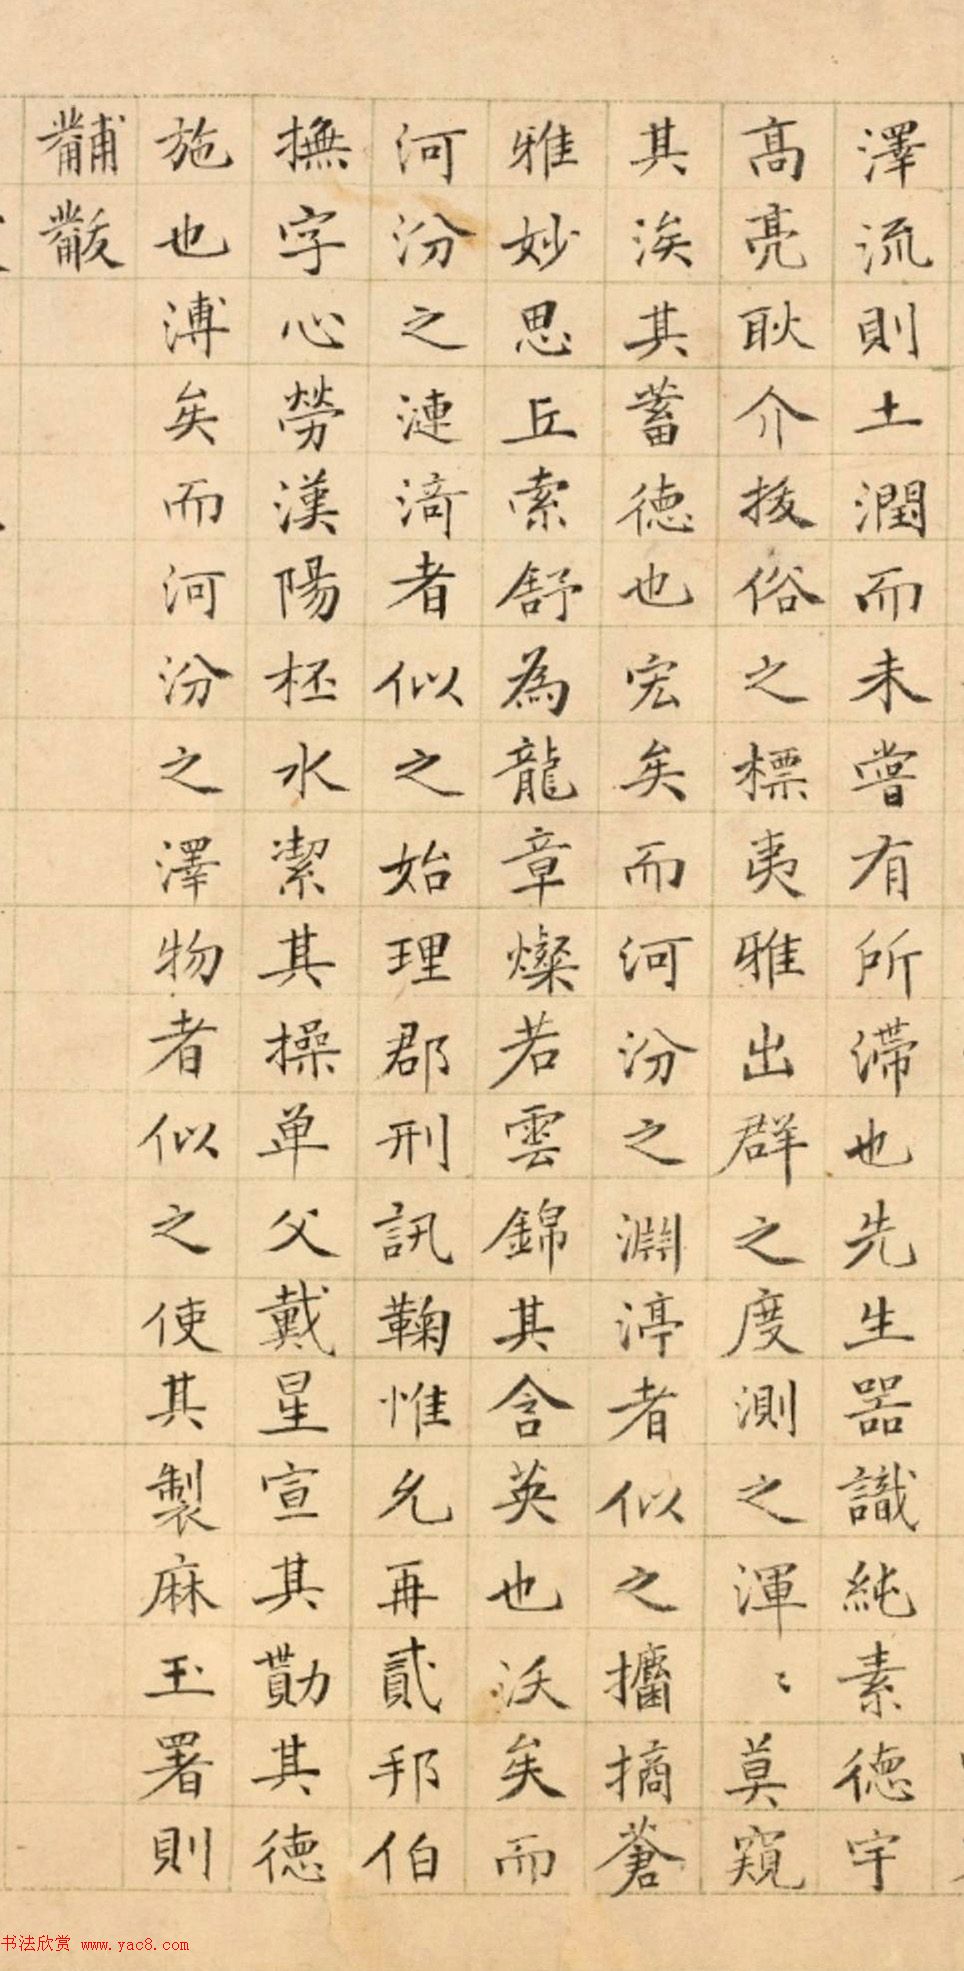 澤流則土潤而未嘗有所滯也先生器識純素德宇
高亮耿介拔俗之標夷雅出群之度測之渾〻莫窺
其涘其蓄德也宏矣而河汾之淵渟者似之攟摘蒼
雅妙思丘索舒為龍章燦若雲錦其含英也沃矣而
河汾之漣漪者似之始理郡刑訊鞫惟允再貳邦伯
撫字心勞漢陽柸水潔其操单父戴星宣其勩其德
施也溥矣而河汾之澤物者似之使其製麻玉署則
黼黻
书法欣赏 www.yac8.com